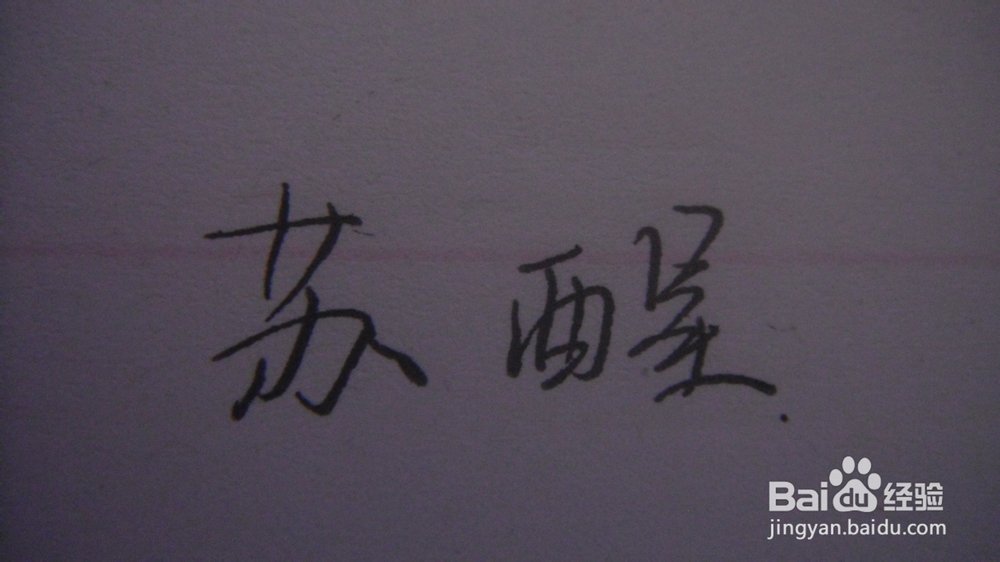 苏醒
Baidu经验
jingyan.baidu.com